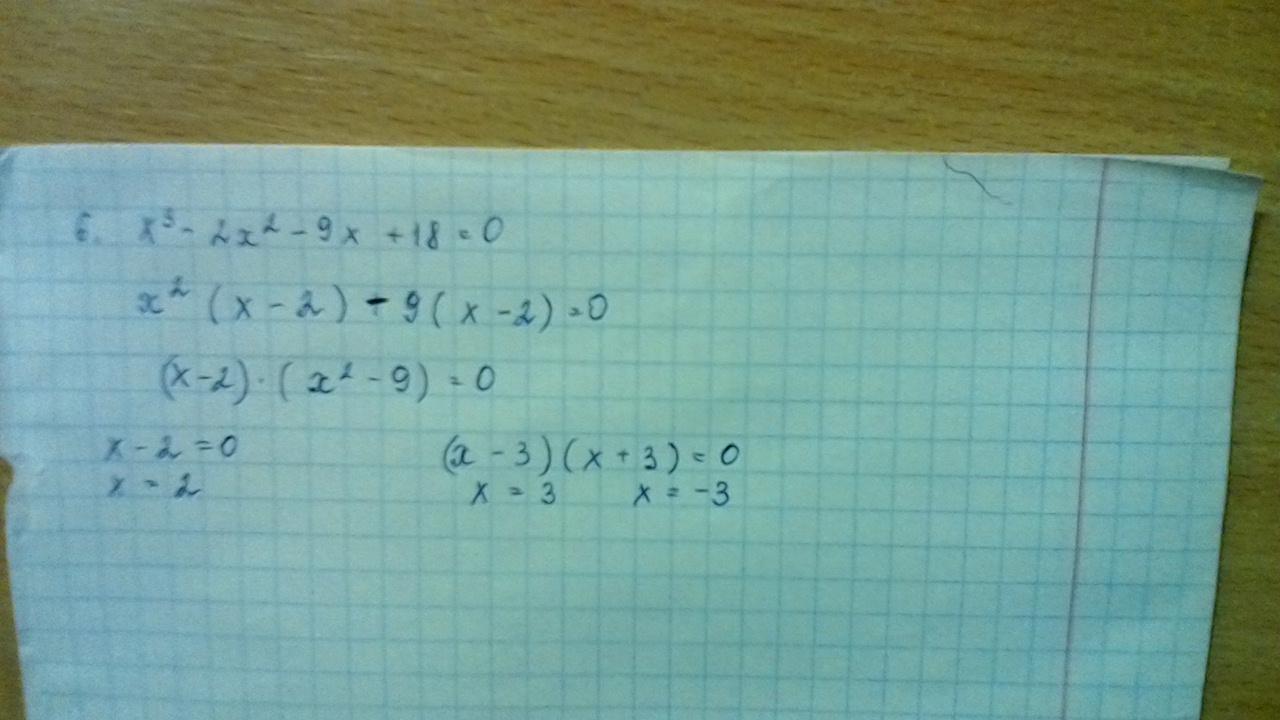 6. x³ - 2x² - 9x + 18 = 0
x² (x - 2) - 9 (x - 2) = 0
(x - 2) · (x² - 9) = 0
x - 2 = 0 (x - 3)(x + 3) = 0
x = 2 x = 3 x = -3